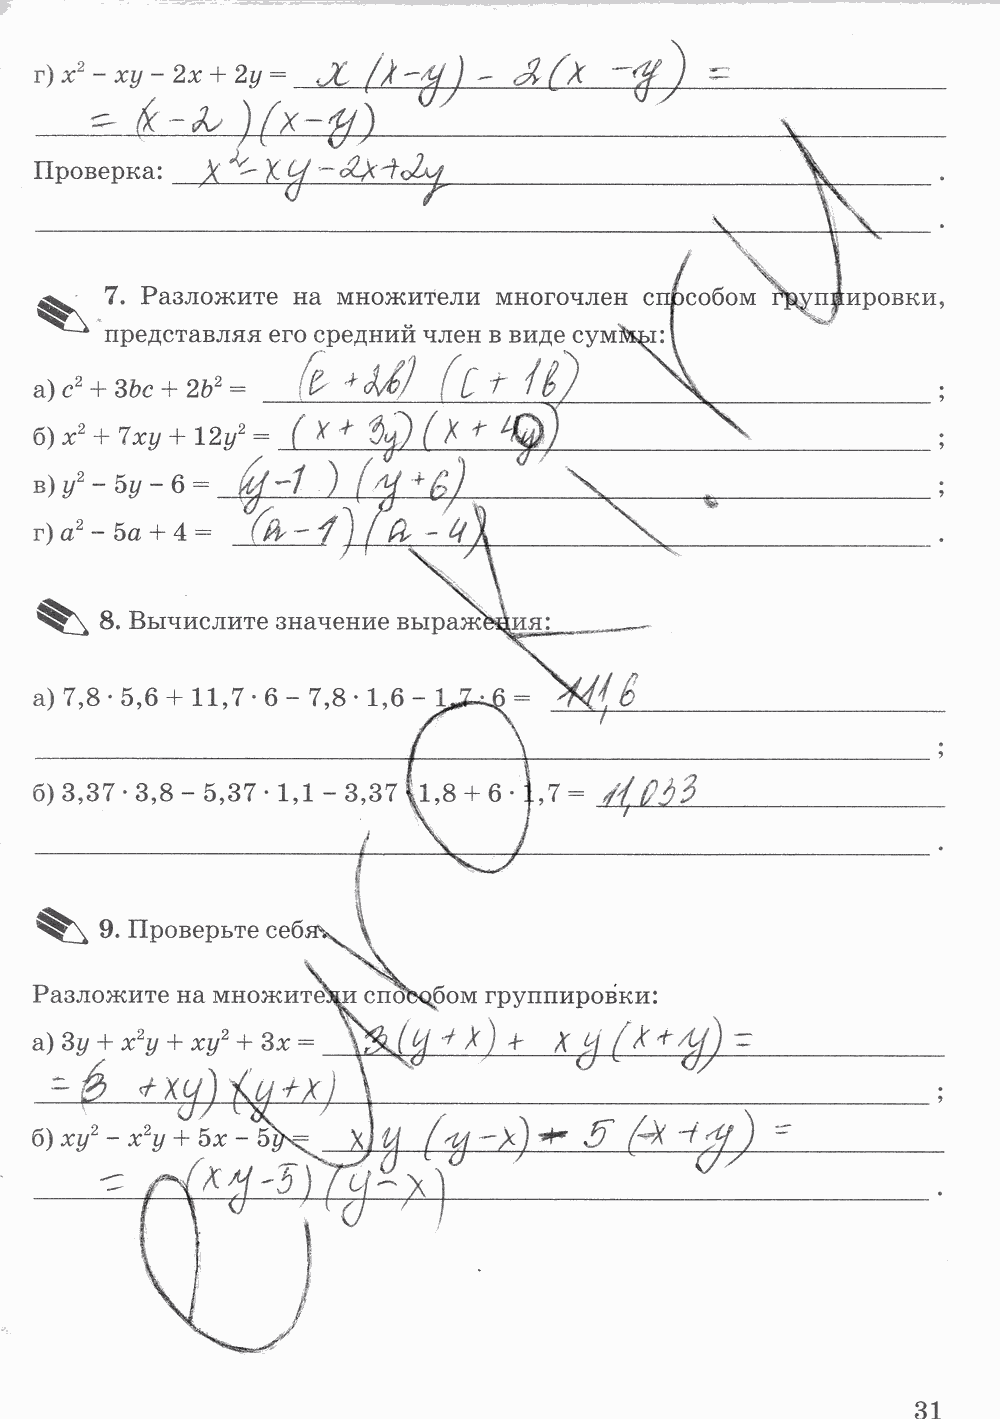 г) x² − xy − 2x + 2y = x (x−y) − 2(x −y) =
= (x−2)(x−y)
Проверка: x²−xy−2x+2y .
.
7. Разложите на множители многочлен способом группировки,
представляя его средний член в виде суммы:
а) c² + 3bc + 2b² = (c +2b) (c + 1b) ;
б) x² + 7xy + 12y² = (x + 3y)(x + 4y) ;
в) y² − 5y − 6 = (y−1) (y+6) ;
г) a² − 5a + 4 = (a−1)(a−4) .
8. Вычислите значение выражения:
а) 7,8 · 5,6 + 11,7 · 6 − 7,8 · 1,6 − 1,7 · 6 = 111,6
;
б) 3,37 · 3,8 − 5,37 · 1,1 − 3,37 · 1,8 + 6 · 1,7 = 11,033
.
9. Проверьте себя.
Разложите на множители способом группировки:
а) 3y + x²y + xy² + 3x = 3(y+x) + xy(x+y) =
= (3 +xy) (y+x) ;
б) xy² − x²y + 5x − 5y = xy (y−x) − 5 (−x+y) =
= (xy−5) (y−x) .
31